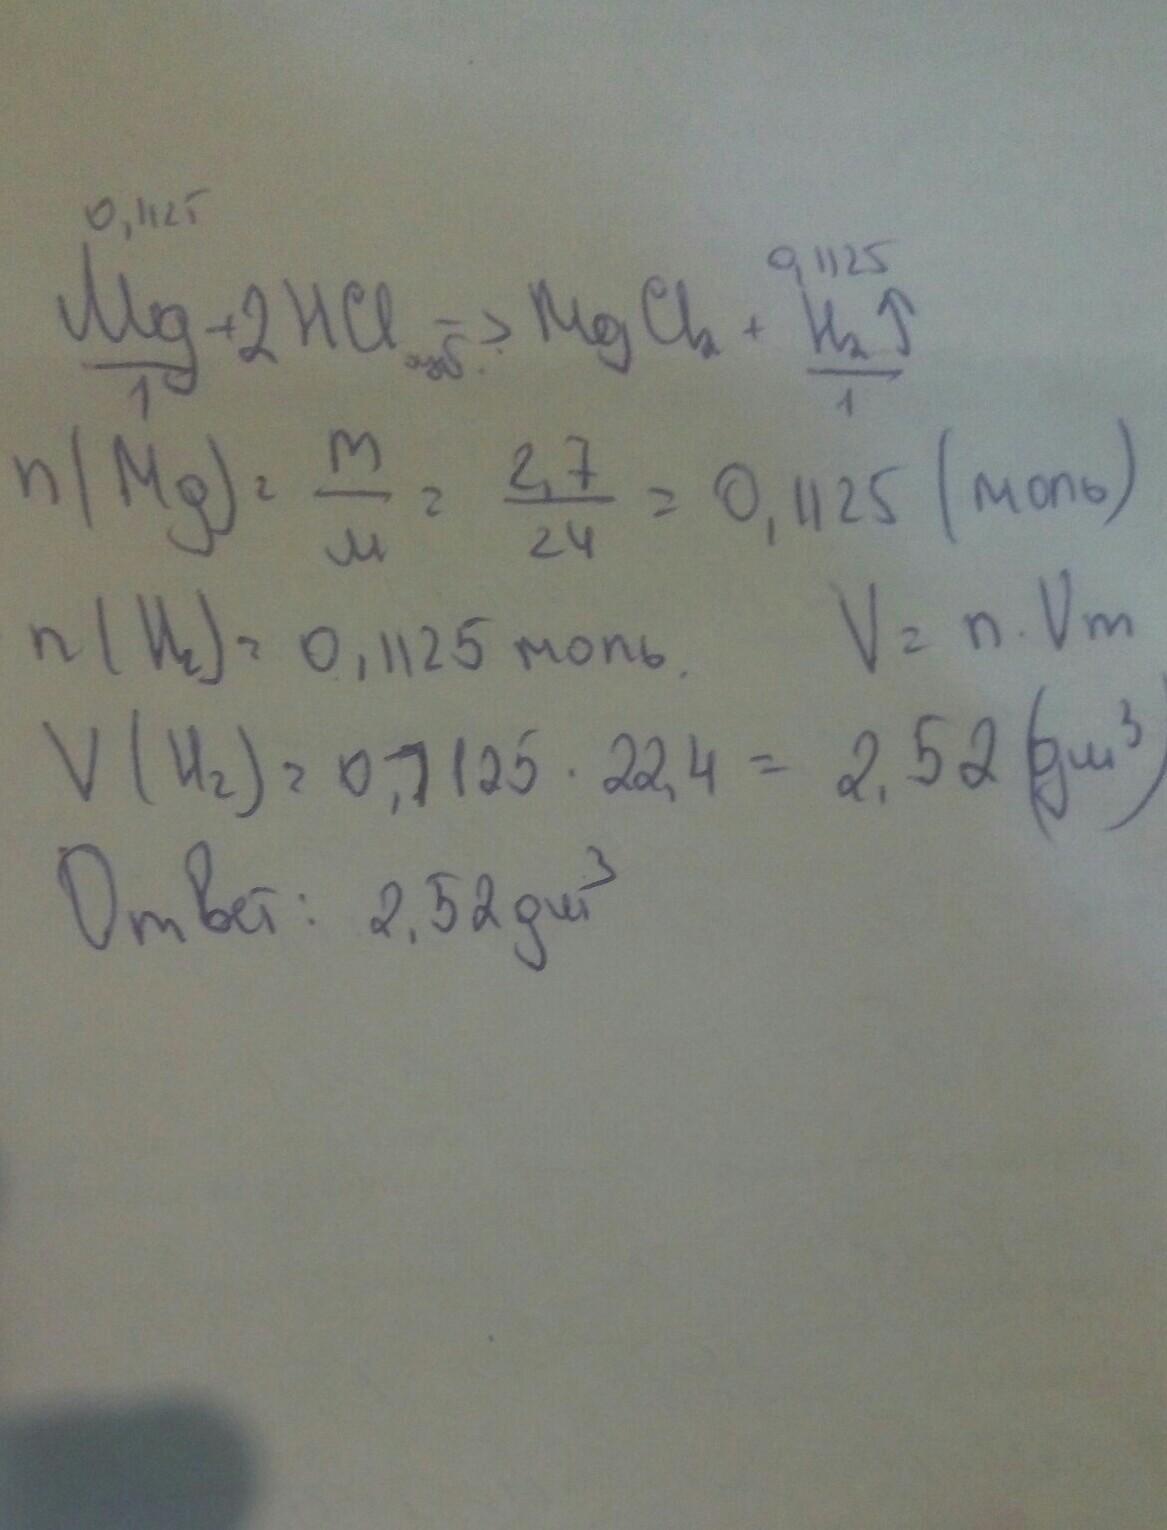 0,1125
0,1125
Mg + 2HCl изб. => MgCl2 + H2↑
1 1
n(Mg) = m/M = 2,7/24 = 0,1125 (моль)
n(H2) = 0,1125 моль. V = n · Vm
V(H2) = 0,1125 · 22,4 = 2,52 (дм³)
Ответ: 2,52 дм³